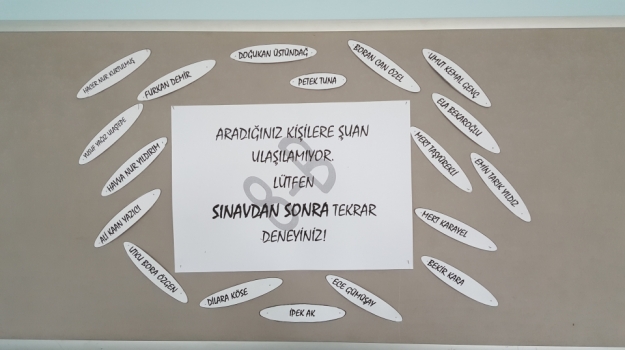 DOĞUKAN ÜSTÜNDAĞ
BORAN CAN ÖZEL
UMUT KEMAL GENÇ
HACER NUR KURTULMUŞ
FURKAN DEMİR
PETEK TUNA
ELA BEKAROĞLU
YUSUF YAĞIZ
HAVVA NUR YILDIRIM
MERT TAŞYÜREKLİ
EMİN TARIK YILDIZ
ARADIĞINIZ KİŞİLERE ŞUAN
ULAŞILAMIYOR.
LÜTFEN
SINAVDAN SONRA TEKRAR
DENEYİNİZ!
8-B
ALİ KAAN YAZICI
MERT KARAYEL
UTKU BORA ÖZGEN
BEKİR KARA
DİLARA KÖSE
İPEK AK
ECE GÜMÜŞAY